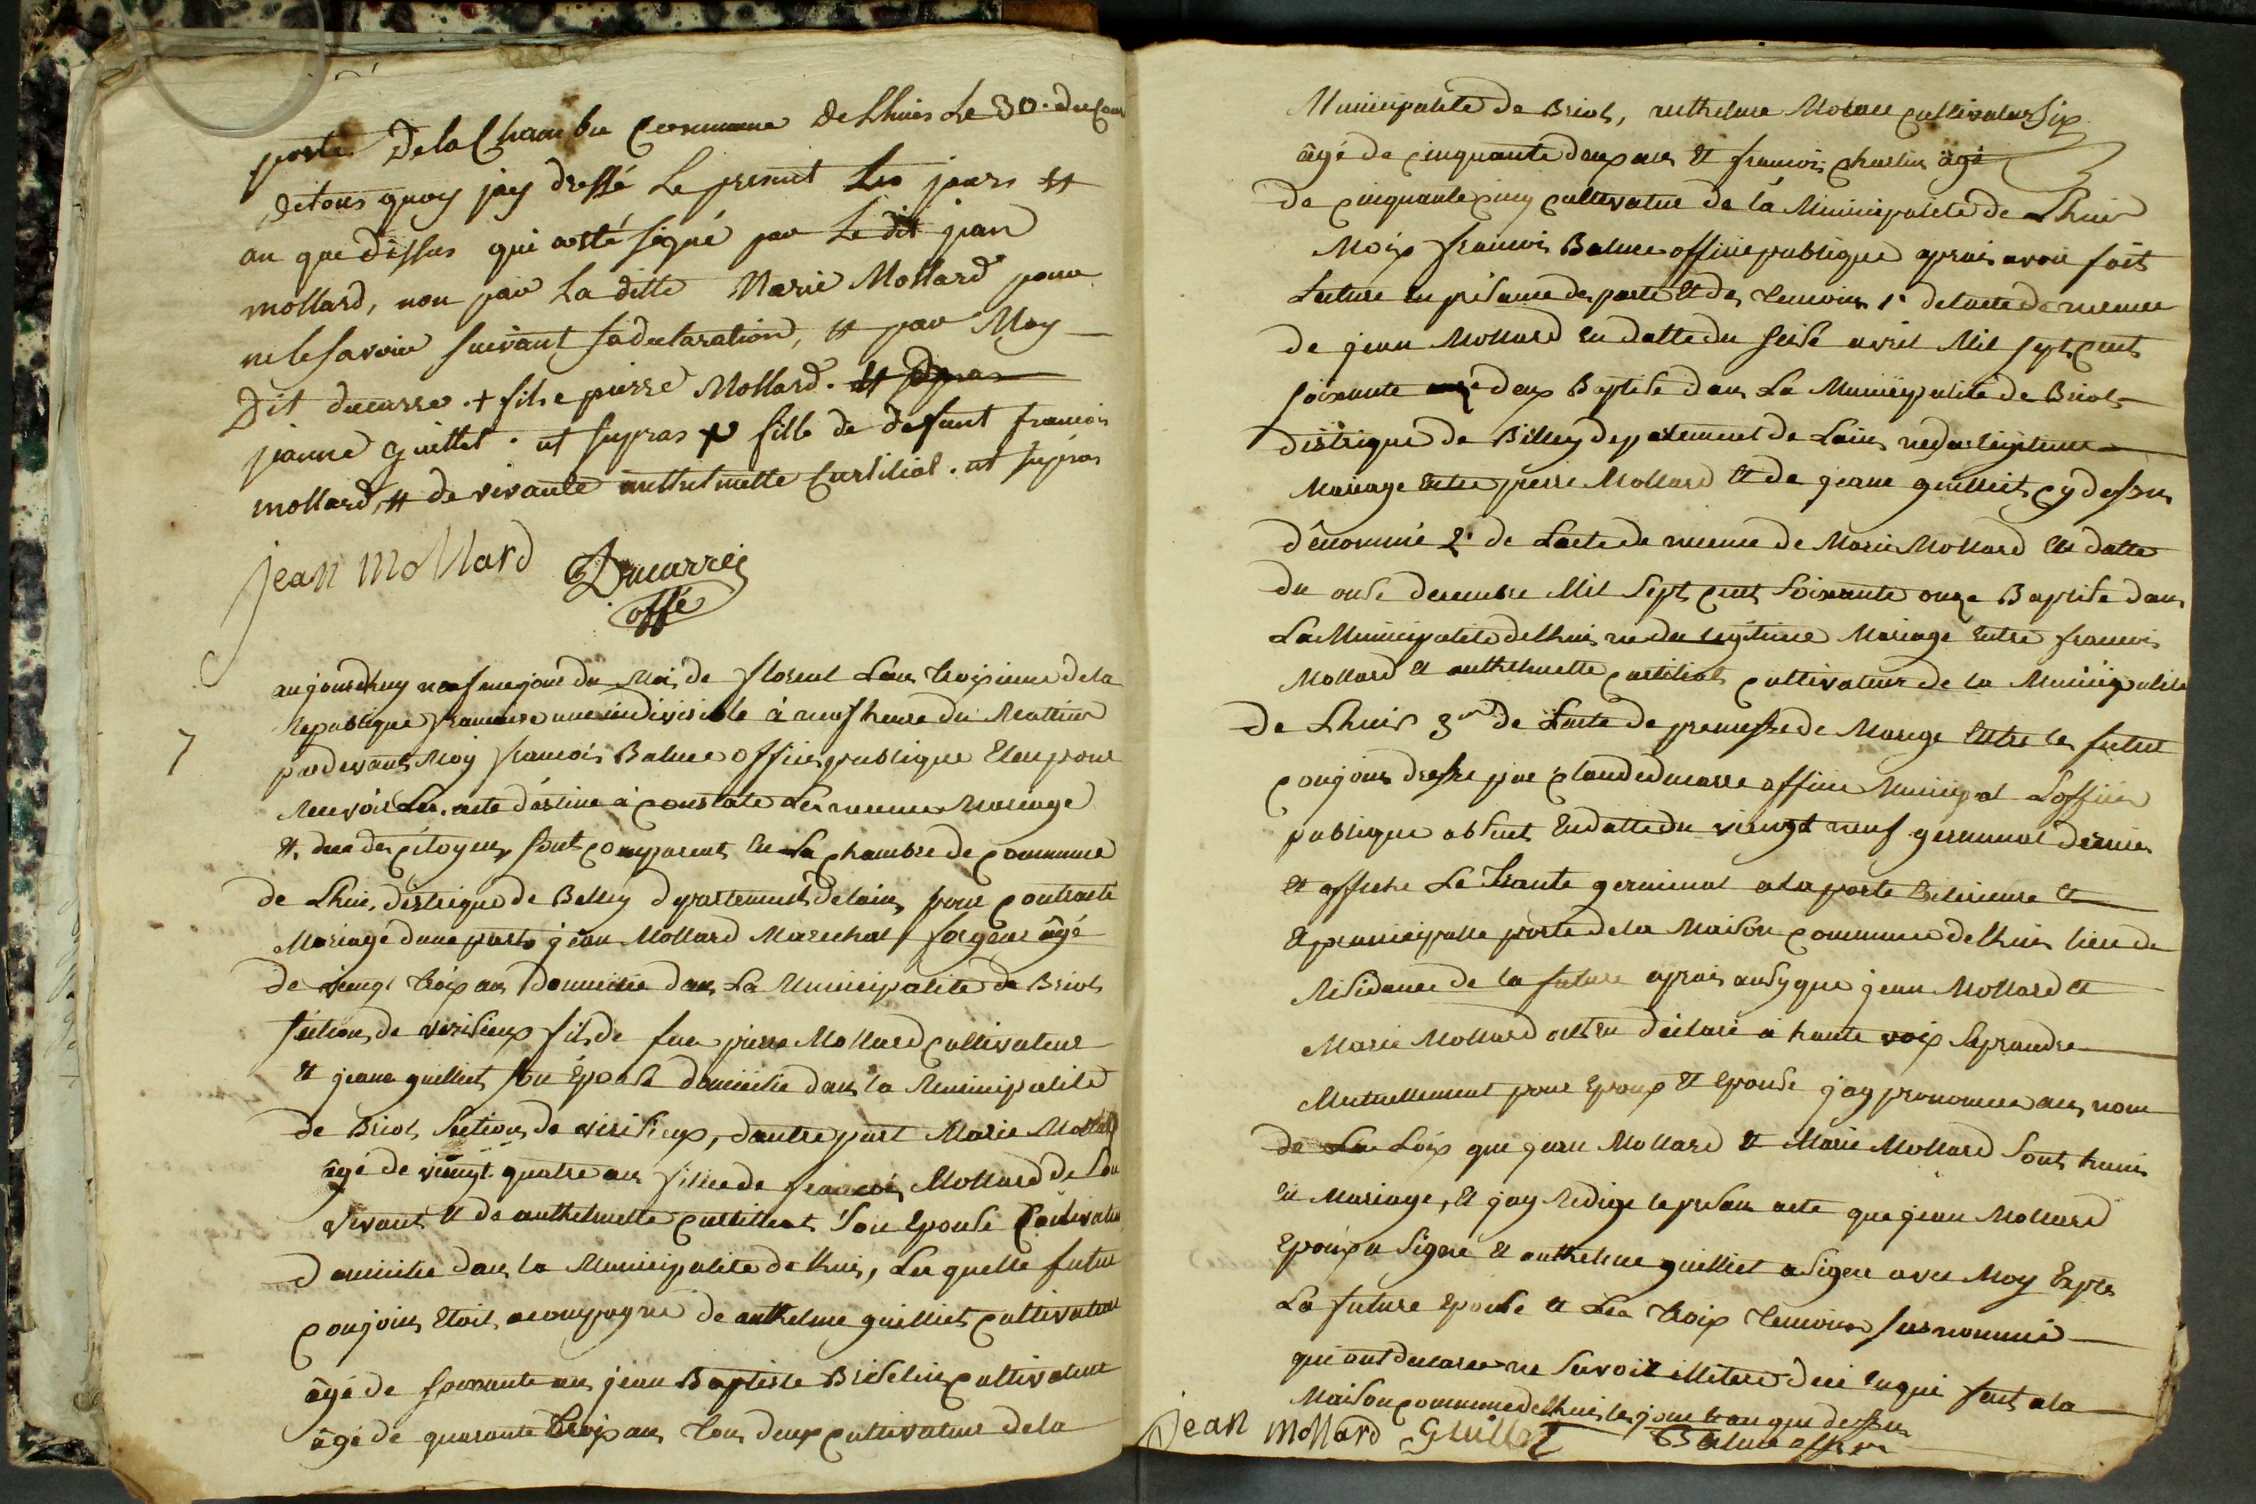 porte De la Chambre Commune De Lhuis Le 30. du Cour
De tous quoy jay dressé Le present Les jours et
an que Dessus qui a esté signé par Le dit jean
mollard, non par La ditte Marie Mollard pour
ne le savoir suivant sa declaration, et par Moy
Dit ducarre. + fils e pierre Mollard.
jeanne guillet. ut supras + fille de defunt francois
mollard, et de vivante anthelmette Curtiliat. ut supras
jean mollard Ducarre
offé
7
aujourdhuy neufme jour du Mois de floreal Lan troisieme de la
Republique francaise une indivisible à neuf heure du Mattin
pardevant Moy francois Balme Officie publique Eleu pour
Recevoir Les acte destine a constate Les Mariage
et des citoyens sont comparent en La chambre de commune
de Lhuis, distrique de Belley departement de Lain, pour contracte
Mariage dune part jean Mollard Marechal forgeur âgé
de vingt trois ans domicilie dans La Municipalite de Briot
section de verisieux fils de feu pierre Mollard cultivateur
et jeane guilliet son Epouse domicilie dans la Municipalité
de Briot section de verisieux, dautre part Marie Mollard
âgé de vingt quatre ans fillie de francois Mollard de Son
Vivant et de anthelmette curtilliat son Epouse Cultivateur
domicilie dans la Municipalite de Lhuis, Les quelle futur
conjoins Etoit acompagné de anthelme guilliet cultivateur
âgé de soixante ans jean Baptiste cultivateur
âgé de quarante trois ans tous deux cultivateur de la
Municipalite de Briot, anthelme cultivateur
âgé de cinquante deux ans et francois charlin âgé
de cinquante cinq cultivateur de la Municipalité de Lhuis
Moix francois Balme officie publique aprais avoir fait
Lecture en presance des parte et des temoins 1° de lacte de
de jean Mollard en datte du seise avril Mil sept cent
soixante deux Baptise dans La Municipalité de Briot
distrique de Billey departement de Lain, ne du legiteme
Mariage entre pierre Mollard et de jeane guilliet cy dessus
dénommé 2° de Lacte de de Marie Mollard en datte
du onse decembre Mil Sept cent soixante onze Baptise dans
La Municipalite de Lhuis ne du legitime Mariage entre francois
Mollard et anthelmette curtiliat cultivateur de la Municipalite
de Lhuis 3me de Lacte de promesse de Mariage entre les futur
conjoins dresse par claude ducarre officie Municipal Loffisier
publique absent en datte du vinngt neuf germinal dernier
et affiche Le trante germinal a la porte Exterieure et
et principalle porte de la Maison commune de Lhuis lieu de
Residance de la future aprais ausy que jean Mollard et
Marie Mollard ont eu déclaré a haute voix se prandre
Mutuellement pour Epoux et Epouse jay prononcee au nom
de La Loix que jean Mollard et Marie Mollard sont hunis
en Mariage, et jay Redige le presan acte que jean Mollard
Epoux a Signé et anthelme guilliet a Signe avec Moy
La future Epouse et Les trois temoins susnommé
qui ont declaree ne savoir de ce enquis fait a la
Maison commune de Lhuis les jour et an que dessus
Jean Mollard Guilliet Balme offier